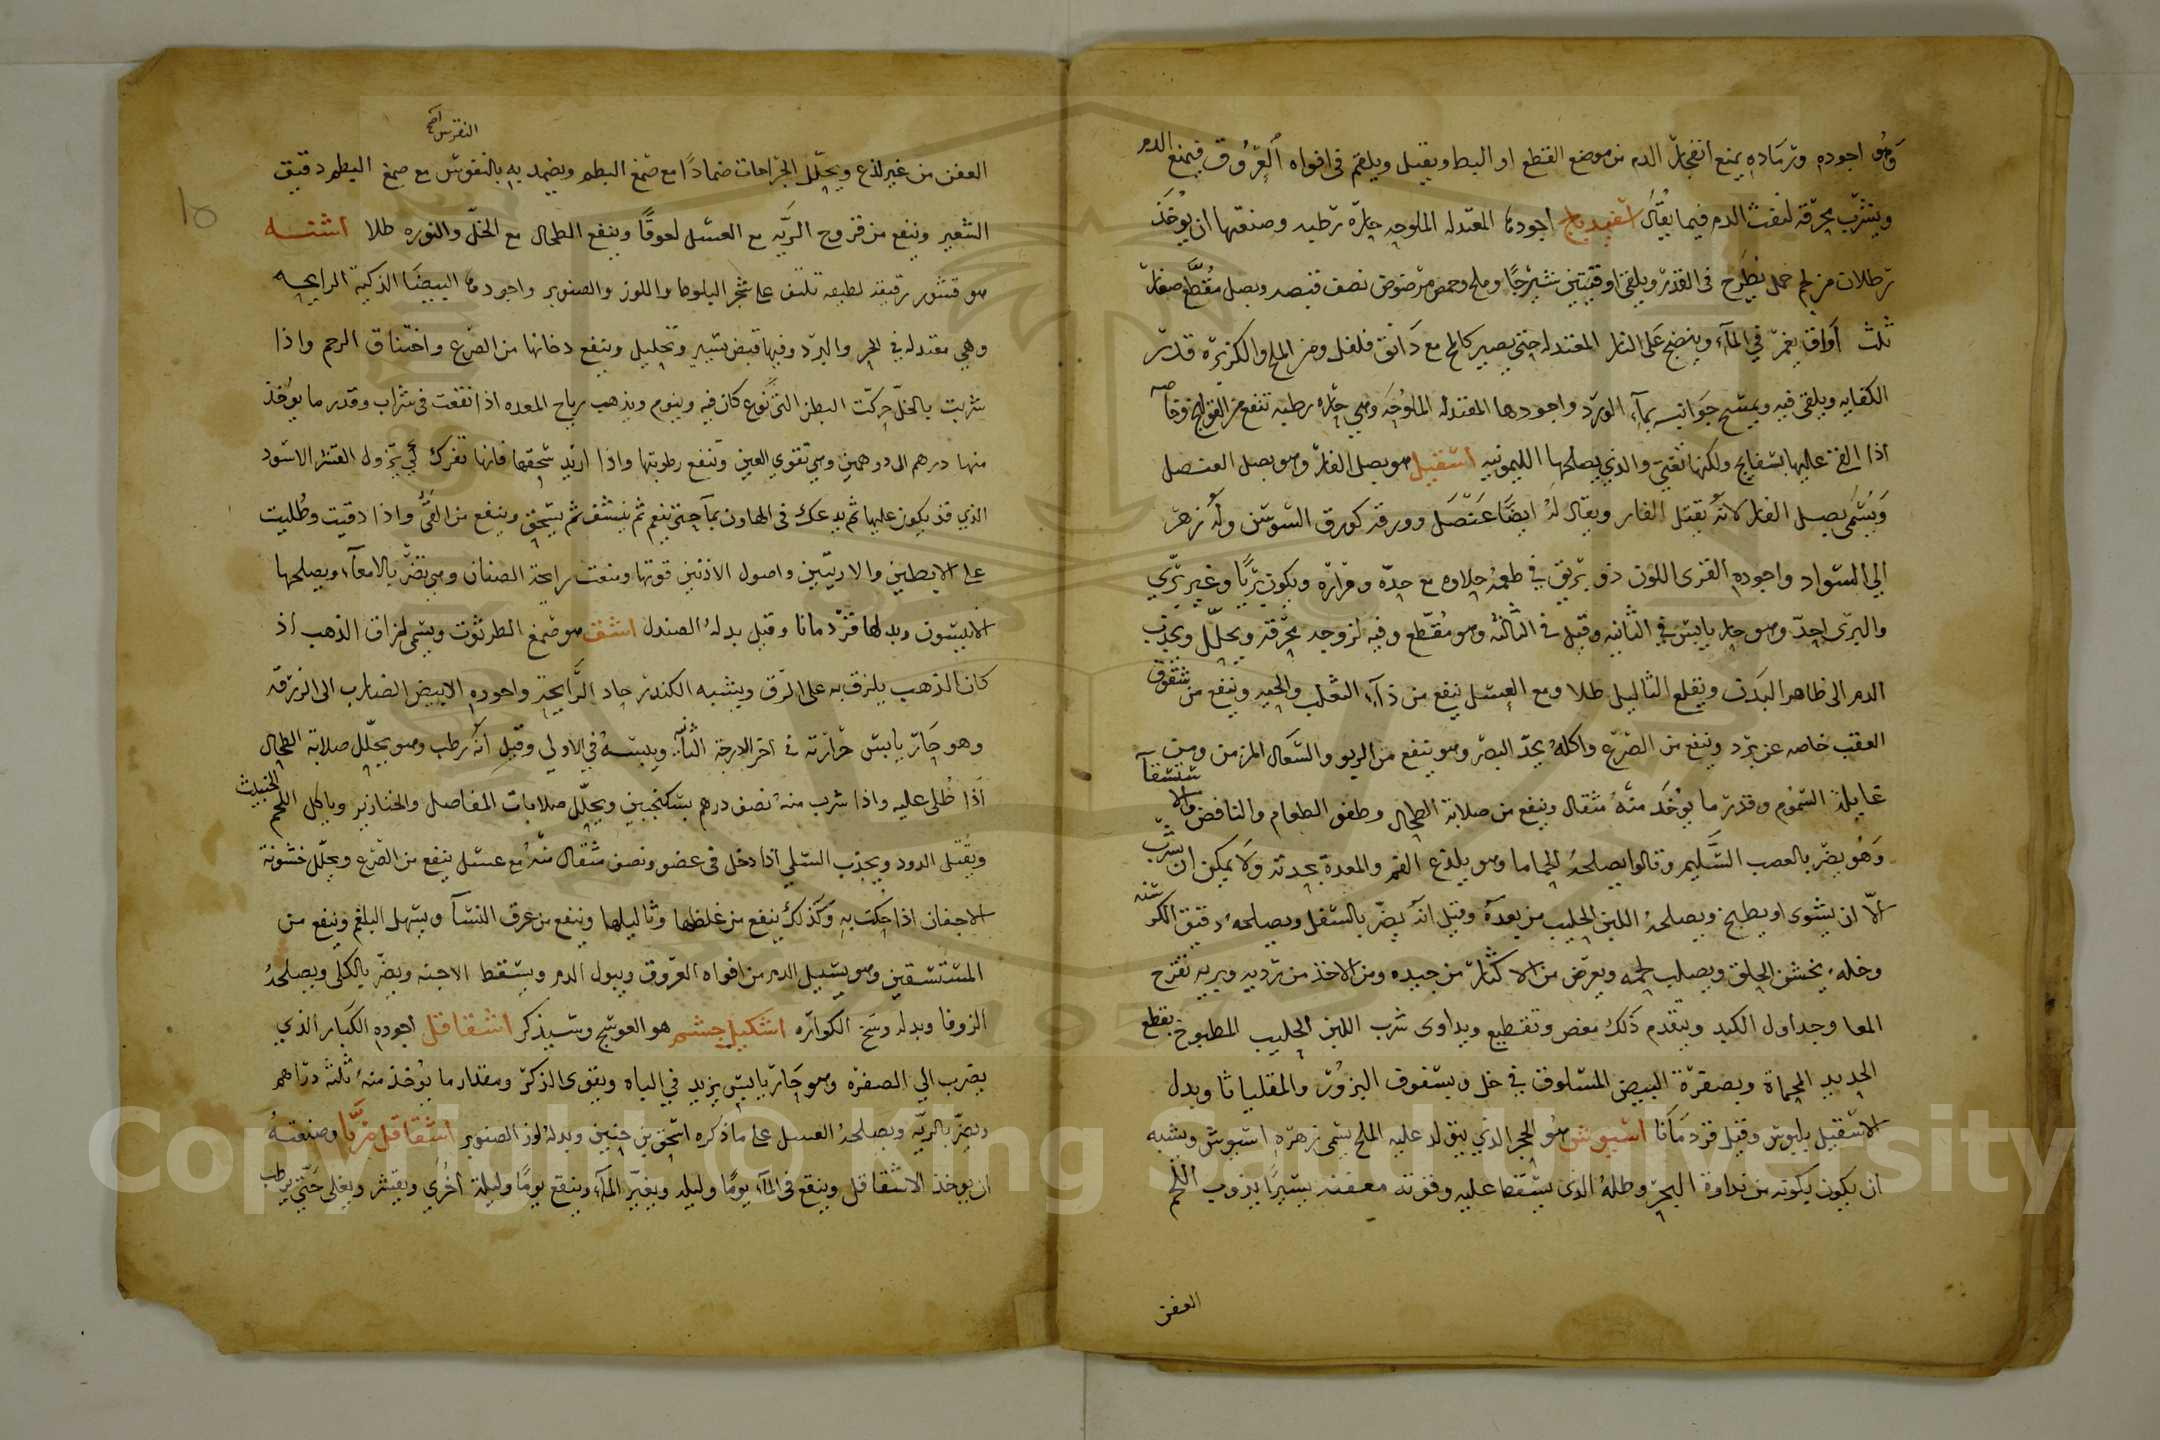 وهو اجوده ورماده يمنع انفجار الدم من موضع القطع او البط او يقبل ويلقم فى افواه العروق فيمنع الدم
ويشرب محرقه لنفث الدم فيما يقال اسفيدباج اجودها المعتدله الملوحه حارة رطبه وصنعتها ان يؤخذ
رطلان من لحم حمل يطرح فى القدر ويلقى اوقيتين شيرجا وملح وحمص مرضوض نصف قبصه وبصل مقطع صغار
ثلث أواق يغمر في المآء وينضج على النار المعتدله حتى يصير كالح مع دانق فلفل ومن الملح والكزبره قدر
الكفايه ويلقى فيه ويمسح جوانبه بمآء الورد واجودها المعتدله الملوحه وهي حاره رطبه تنفع من القولنج وخاصه
اذا القى عليها بسفايج ولكنها تغثي والذي يصلحها الليمونيه اسقيل هو بصل الفار وهو بصل العنصل
ويسمى بصل الفار لانه يقتل الفار ويقال له ايضا عنصل وورقه كورق السوسن وله زهر
الي السواد واجوده القزى اللون ذو بريق في طعمه حلاوه مع حده ومرارة ويكون بريا وغير بري
والبرى احد وهو حار يابس في الثانيه وقيل فى الثالثه وهو مقطع وفيه لزوجه محرقه ويحلل ويجذب
الدم الى ظاهر البدن ويقلع الثاليل طلا ومع العسل ينفع من دآء الثعلب والحيه وينفع من شقوق
العقب خاصه عن برد وينفع من الصرع واكله يحد البصر وهو ينفع من الربو والسعال المزمن ومن
غايلة السموم وقدر ما يؤخذ منه مثقال وينفع من صلابة الطحال وطفو الطعام والنافض والاستسقآ
وهو يضر بالعصب السليم وقالوا يصلحه الحماما وهو يلذع الفم والمعدة بحدته ولا يمكن ان يشرب
الا ان يشوى او يطبخ ويصلحه اللبن الحليب من بعده وقيل انه يضر بالسفل ويصلحه دقيق الكرسنه
وخله يخشن الحلق ويصلب لحمه ويعرض من الاكثار من جيده ومن الاخذ من رديه وبريه تقرح
المعا وجداول الكبد ويتقدم ذلك مغص وتقطيع ويداوى شرب اللبن الحليب المطبوخ بقطع
الحديد المحماة وبصفرة البيض المسلوق في خل وبسفوف البزور والمقلياثا وبدل
الاسقيل بلبوس وقيل قردمانا اسيوس هو الحجر الذي يتولد عليه الملح يسمى زهره اسيوس ويشبه
ان يكون يكونه من نداوة البحر وطله الذى يسقط عليه وقوته معفنه يسيرا يذوب اللحم
العفن
النقرس اصح
العفن من غير لذع ويحلل الجراحات ضمادا مع صمغ البطم ويضمد به بالنقوس مع صمغ البطم دقيق
الشعير وينفع من قروح الريه مع العسل لعوقا وينفع الطحال مع الخل والنوره طلا اشنه
هو قشور رقيقه لطيفه تلتف على شجر البلوط واللوز والصنوبر واجودها البيضا الذكية الرايحه
وهي معتدله في الحر والبرد وفيها قبض يسير وتحليل وينفع دخانها من الصرع واختناق الرحم واذا
شربت بالخل حركت البطن التى نوع كان فيه وينوم ويذهب رياح المعده اذا نقعت فى شراب وقدر ما يؤخذ
منها درهم الى درهمين وهي تقوي العين وتنفع رطوبتها واذا اريد سحقها فانها تفرك حتى يزول القشر الاسود
الذي قد يكون عليها ثم يدعك فى الهاون بمآ حتى ينعم ثم ينشف ثم يسحق وينفع من القئ واذا دقيت وطليت
على الابطين والاربيتين واصول الاذنين قوتها ومنعت رايحة الصنان وهى تضر بالامعآ ويصلحها
الانيسون وبدلها قردمانا وقيل بدله الصندل اشق هو صمغ الطرثوث ويسمى لزاق الذهب اذ
كان الذهب يلزق به على الرق ويشبه الكندر حاد الرايحة واجوده الابيض الضارب الى الزرقه
وهو حار يابس حرارته فى اخر الدرجة الثانيه ويبسه في الاولي وقيل انه رطب وهو يحلل صلابة الطحال
اذا طلى عليه واذا شرب منه نصف درهم بسكنجبين ويحلل صلابات المفاصل والخنازير وياكل اللحم الخبيث
ويقتل الدود ويجذب السلي اذا دخل فى عضو ونصف مثقال منه مع عسل ينفع من الصرع ويحلل خشونة
الاجفان اذا حكت به وكذلك ينفع من غلظها وثاليلها وينفع من عرق النسآ ويسهل البلغم وينفع من
المستسقين وهو يسيل الدم من افواه العروق ويبول الدم ويسقط الاجنه ويضر بالكلى ويصلحه
الزوفا وبدله وسخ الكواره اشكيل جشم هو العوسج وسيذكر اشقاقل اجوده الكبار الذي
يضرب الي الصفره وهو حار يابس يزيد في الباه ويقوى الذكر ومقدار ما يؤخذ منه ثلثه دراهم
ويضر بالريه ويصلحه العسل على ما ذكره اسحق بن حنين وبدله لوز الصنوبر اشقاقل مربا وصنعته
ان يوخذ الاشقاقل وينقع فى المآء يوما وليله ويغير المآء وينقع يوما وليلة اخرى ويقشر ويغلى حتى يرطب
Copyright © King Saud University